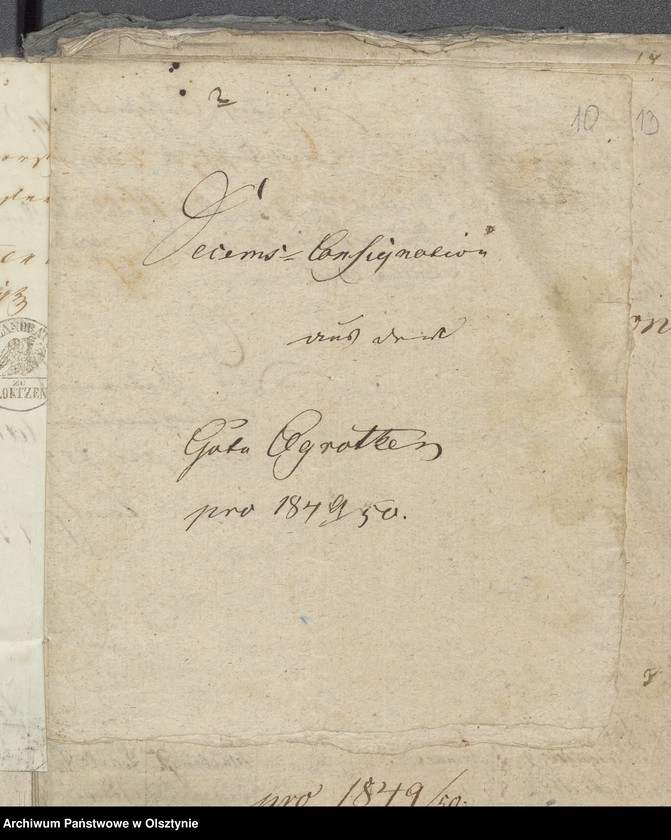 2
10 13
Decems-Consignation
aus dem
Gute Ogrotken
pro 1849/50.
LANDE
ZU
LOETZEN
pro 1849/50.
Archiwum Państwowe w Olsztynie